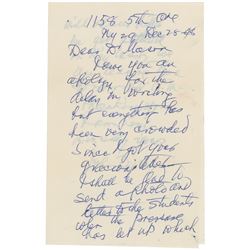 1158 5th Ave
Dec 28
Dear Dr Mason
I owe you an
apology for the
delay in writing
but everything has
been very crowded
Since I got your
I shall be glad to
send a photo and
letter to the students
when the pressure
has let up which